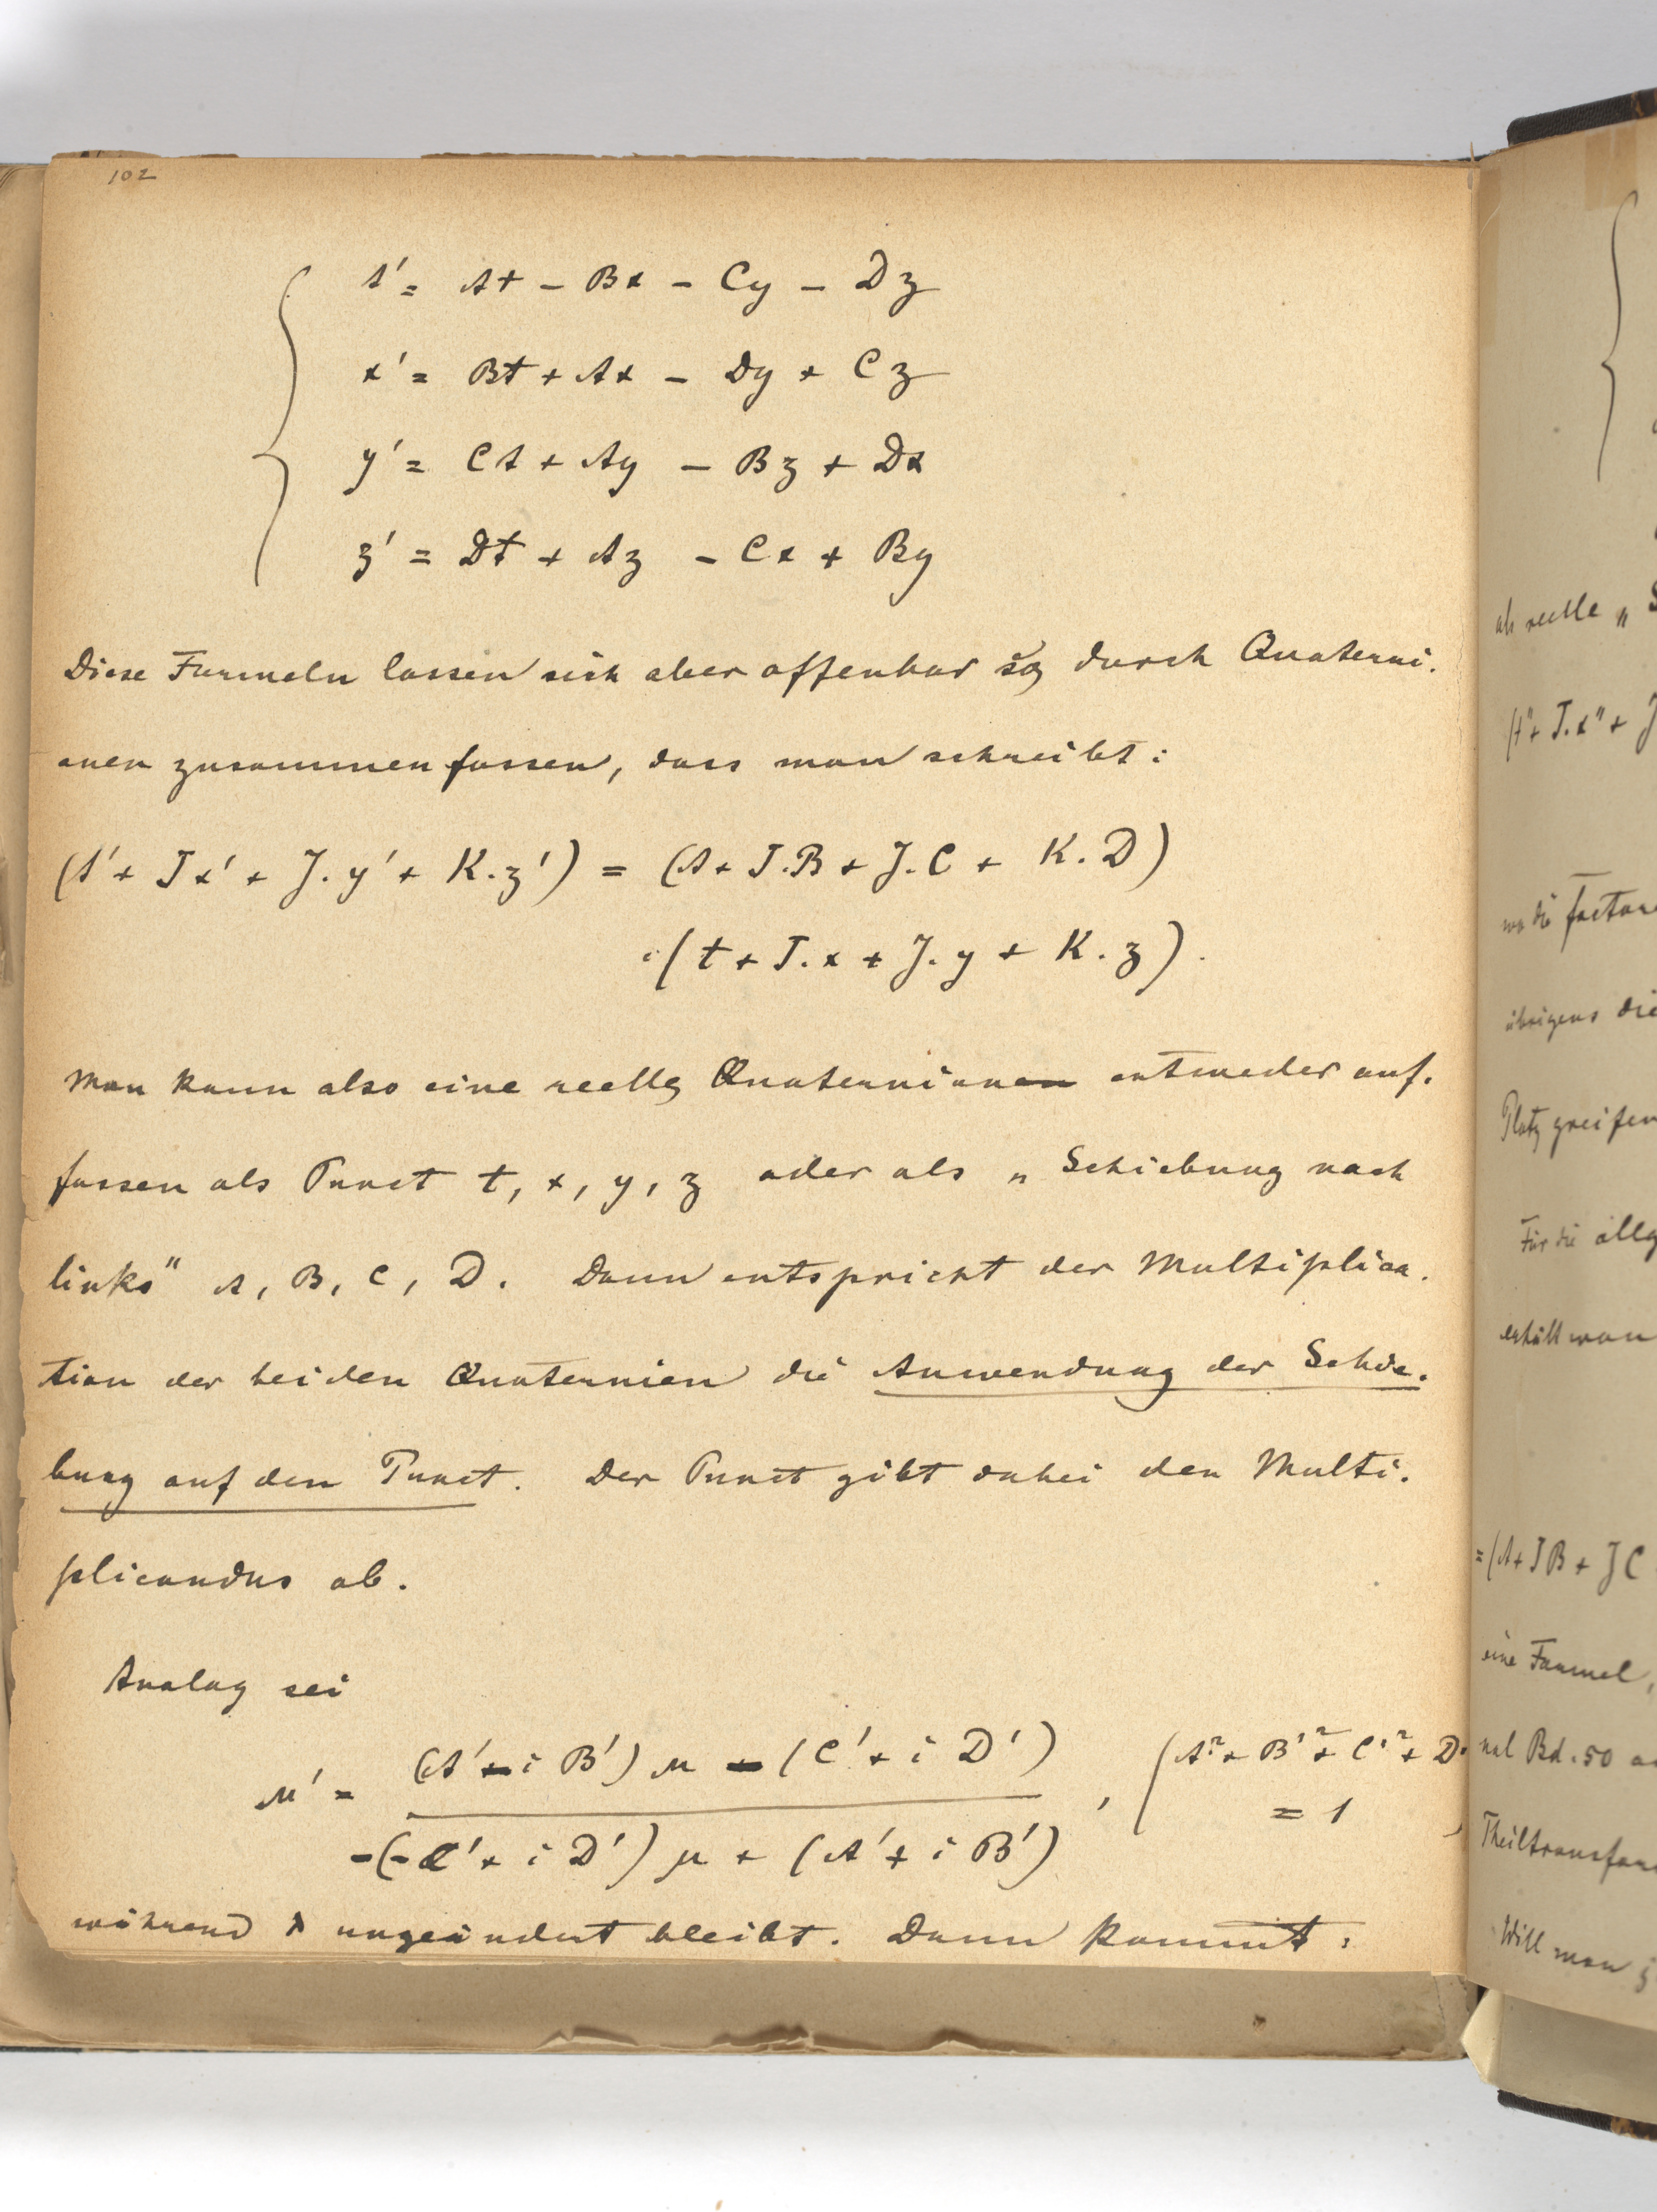 102
t' = At - Bx - Cy - Dz
x' = Bt + Ax - Dy + Cz
y' = Ct + Ay - Bz + Dx
z' = Dt + Az - Cx + By
Diese Formeln lassen sich aber offenbar so durch Quaterni-
onen zusammenfassen, dass man schreibt:
(t' + Ix' + J.y' + K.z') = (A + I.B + J.C + K.D)
.(t + I.x + J.y + K.z).
Man kann also eine reelle Quaternion entweder auf-
fassen als Punct t, x, y, z oder als „Schiebung nach
links" A, B, C, D. Dann entspricht der Multiplica-
tion der beiden Quaternien die Anwendung der Schie-
bung auf den Punct. Der Punct gibt dabei den Multi-
plicandus ab.
Analog sei
μ' = (A' + i B') μ - (C' + i D') , (A'² + B'² + C'² + D'
-(-C' + i D') μ + (A' + i B') = 1
während λ ungeändert bleibt. Dann kommt:
als reelle „
(t" + I.x" + J
wo die Factore
übrigens die
Platz greifen
Für die allg
erhält man
= (A + IB + JC
eine Formel,
nal Bd. 50
Theiltransfor
Will man